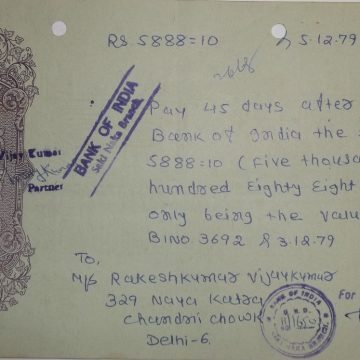 RS. 5888=10 5.12.79
Pay 45 days after
Bank of India the
5888=10 (Five thousa
hundred Eighty Eight
only being the valu
BINO. 3692 3.12.79
Vijay Kumar
Partner
BANK OF INDIA
Branch
To,
M/s Rakeshkumar Vijaykumar
329 Naya Katra
Chandni Chowk
Delhi-6.
For
BANK OF INDIA